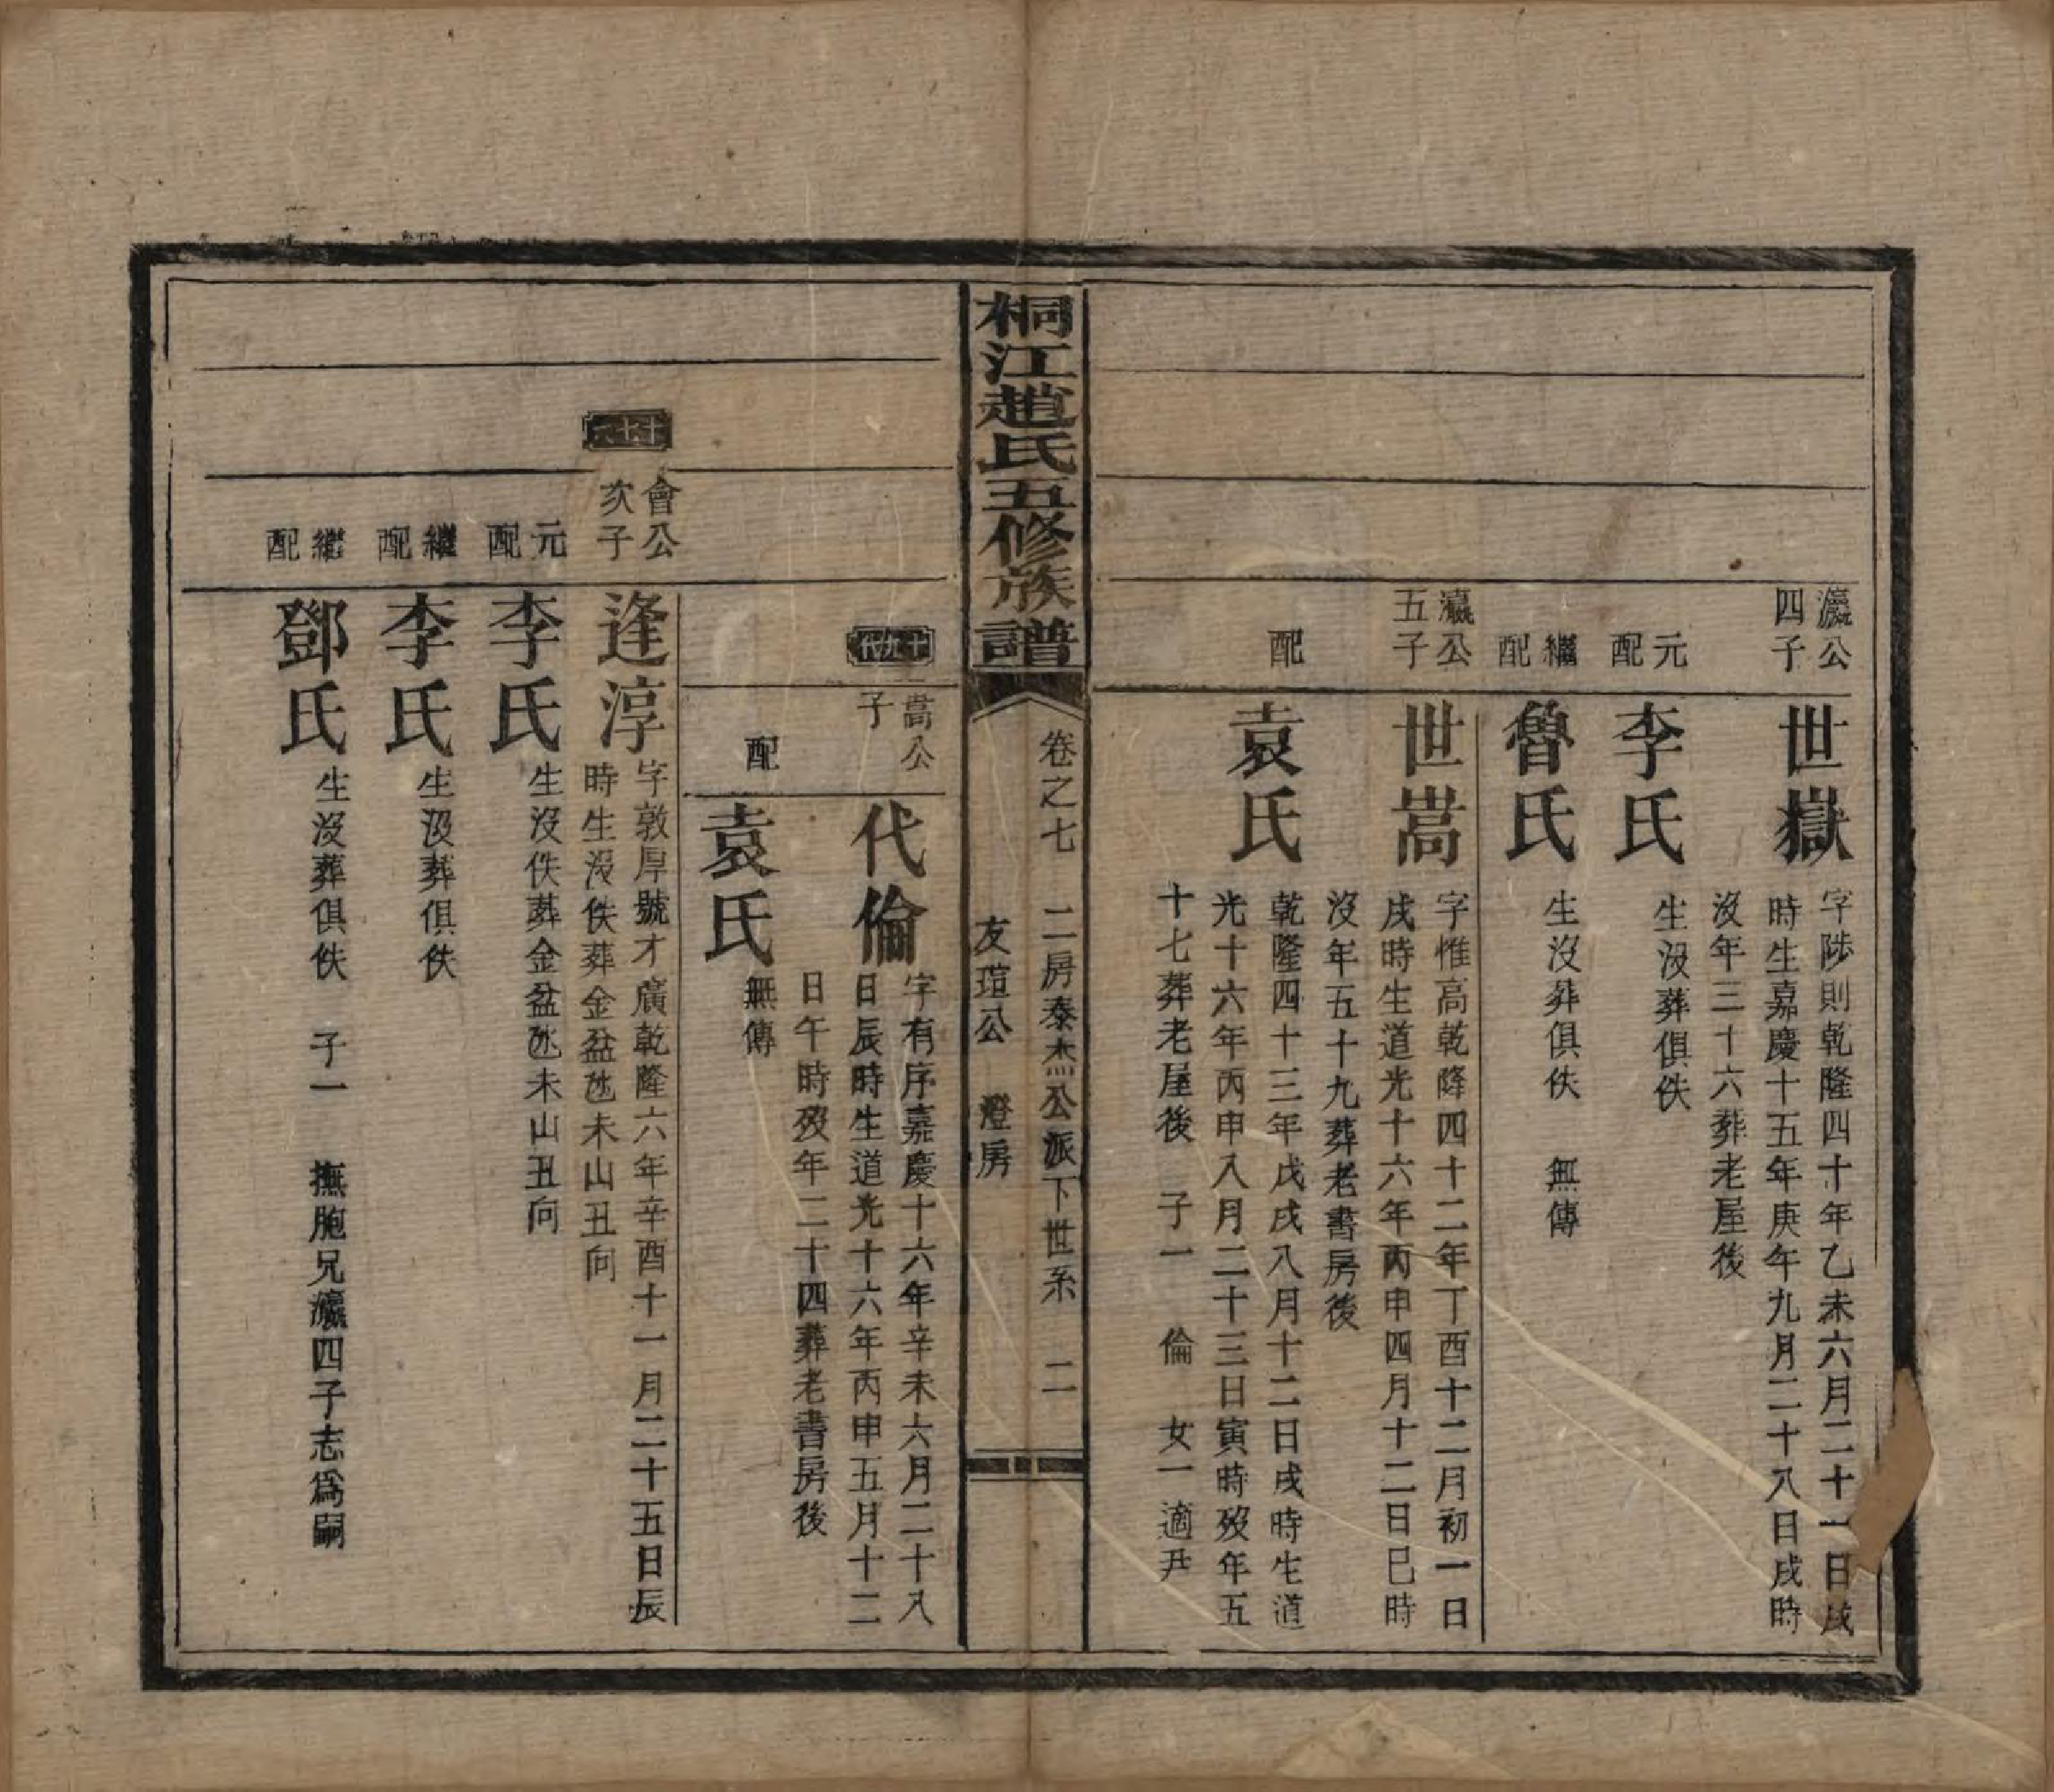 瀛公
四子
世嶽
字陟則乾隆四十年乙未六月二十一日戌
時生嘉慶十五年庚午九月二十八日戌時
沒年三十六葬老屋後
元
配
李氏
生沒葬俱佚
繼
配
魯氏
生沒葬俱佚　無傳
瀛公
五子
世嵩
字惟高乾隆四十二年丁酉十二月初一日
戌時生道光十六年丙申四月十二日巳時
沒年五十九葬老書房後
配
袁氏
乾隆四十三年戊戌八月十二日戌時生道
光十六年丙申八月二十三日寅時歿年五
十七葬老屋後　子一　倫　女一適尹
桐江趙氏五修族譜
卷之七　二房泰杰公派下世系　二
友瑄公　澄房
十九代
嵩公
子
代倫
字有序嘉慶十六年辛未六月二十八
日辰時生道光十六年丙申五月十二
日午時歿年二十四葬老書房後
配
袁氏
無傳
十七代
會公
次子
逢淳
字敦厚號才廣乾隆六年辛酉十一月二十五日辰
時生沒佚葬金盆氹未山丑向
元
配
李氏
生沒佚葬金盆氹未山丑向
繼
配
李氏
生沒葬俱佚
繼
配
鄧氏
生沒葬俱佚　子一　撫胞兄瀛四子志爲嗣